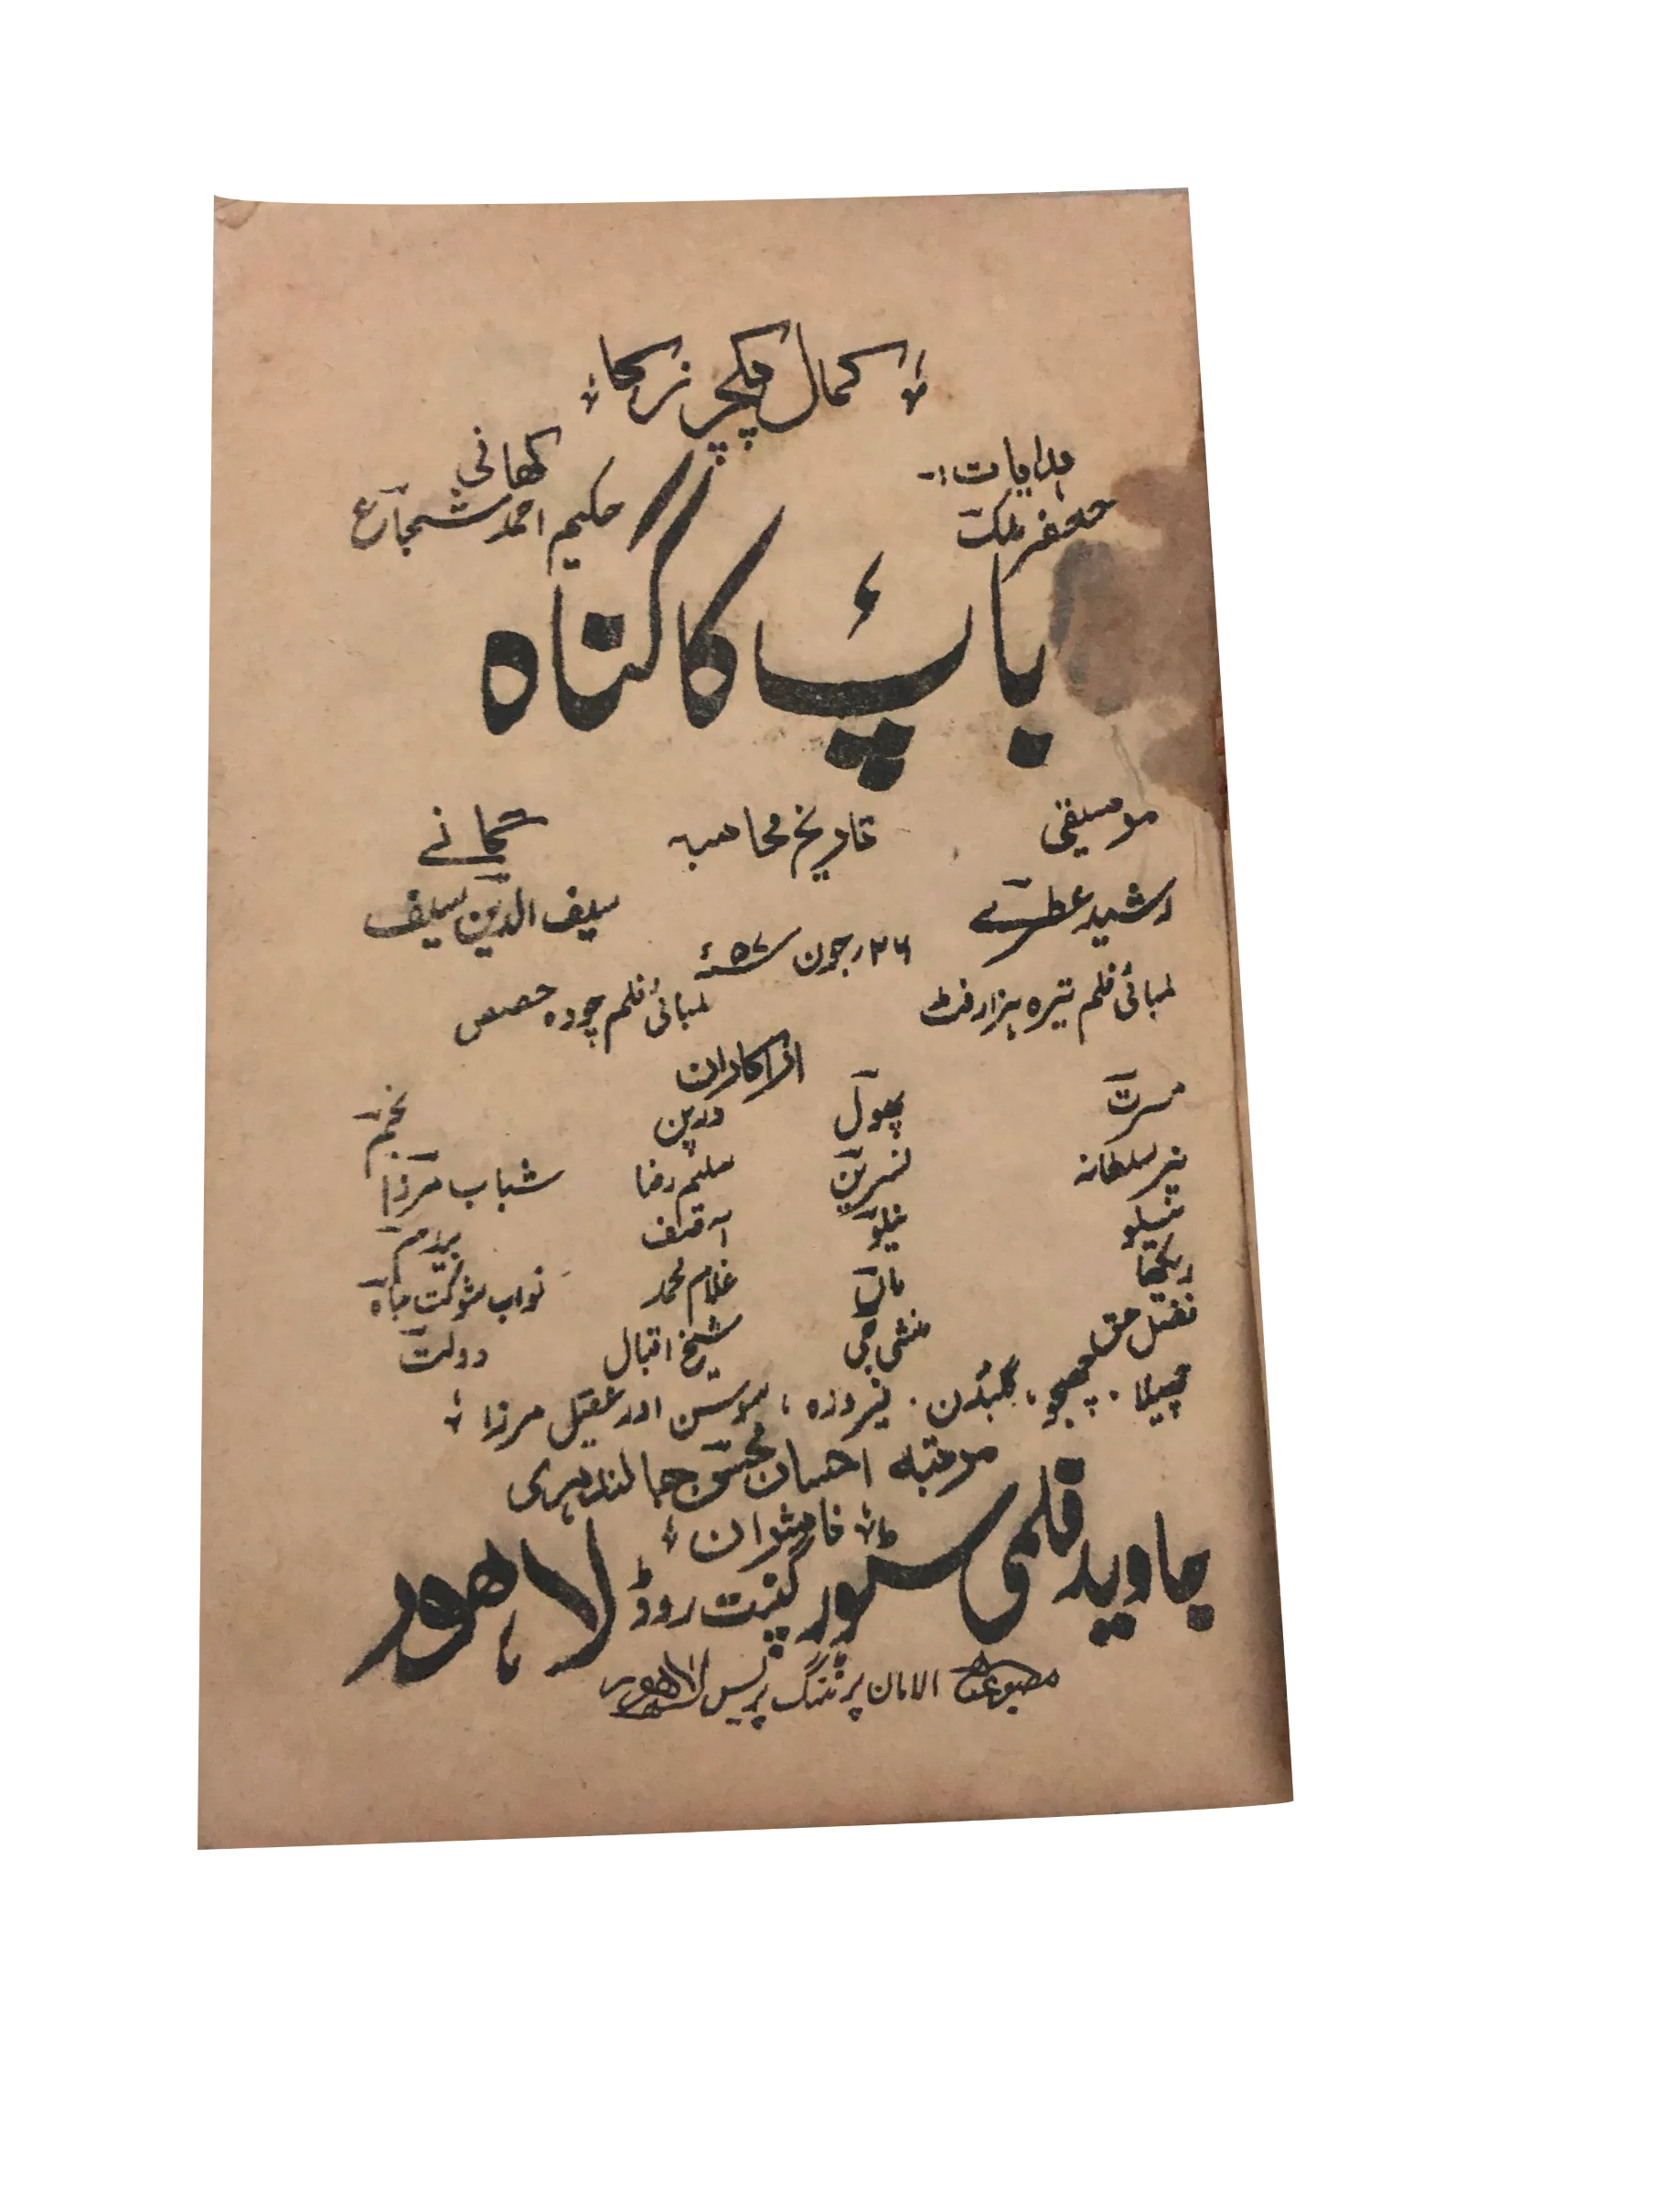 کمال پکچرز کا
ہدایات:- کہانی
جعفر ملک حکیم احمد شجاع
باپ کا گناہ
موسیقی تاریخ محاسبہ گانے
رشید عطرے ۲۶ رجون ۵۷ء سیف الدین سیف
لمبائی فلم تیرہ ہزار فٹ لمبائی فلم چودہ حصص
اداکاران
مسرت پھول درپن نجم
نیر سلطانہ نسرین سلیم رضا شباب مرزا
نیلو نیلو آصف بیدم
ریکھا ماں غلام محمد نواب شوکت جاہ
فضل حق منشی جی شیخ اقبال دولت
چھیلا ، چھجو ، گلبدن ، فیروزہ ، سوسن اور عقیل مرزا
مرتبہ احسان محسن جالندہری
ناشران
جاوید فلمی سٹور گنپت روڈ لاہور
مطبوعہ الامان پرنٹنگ پریس لاہور